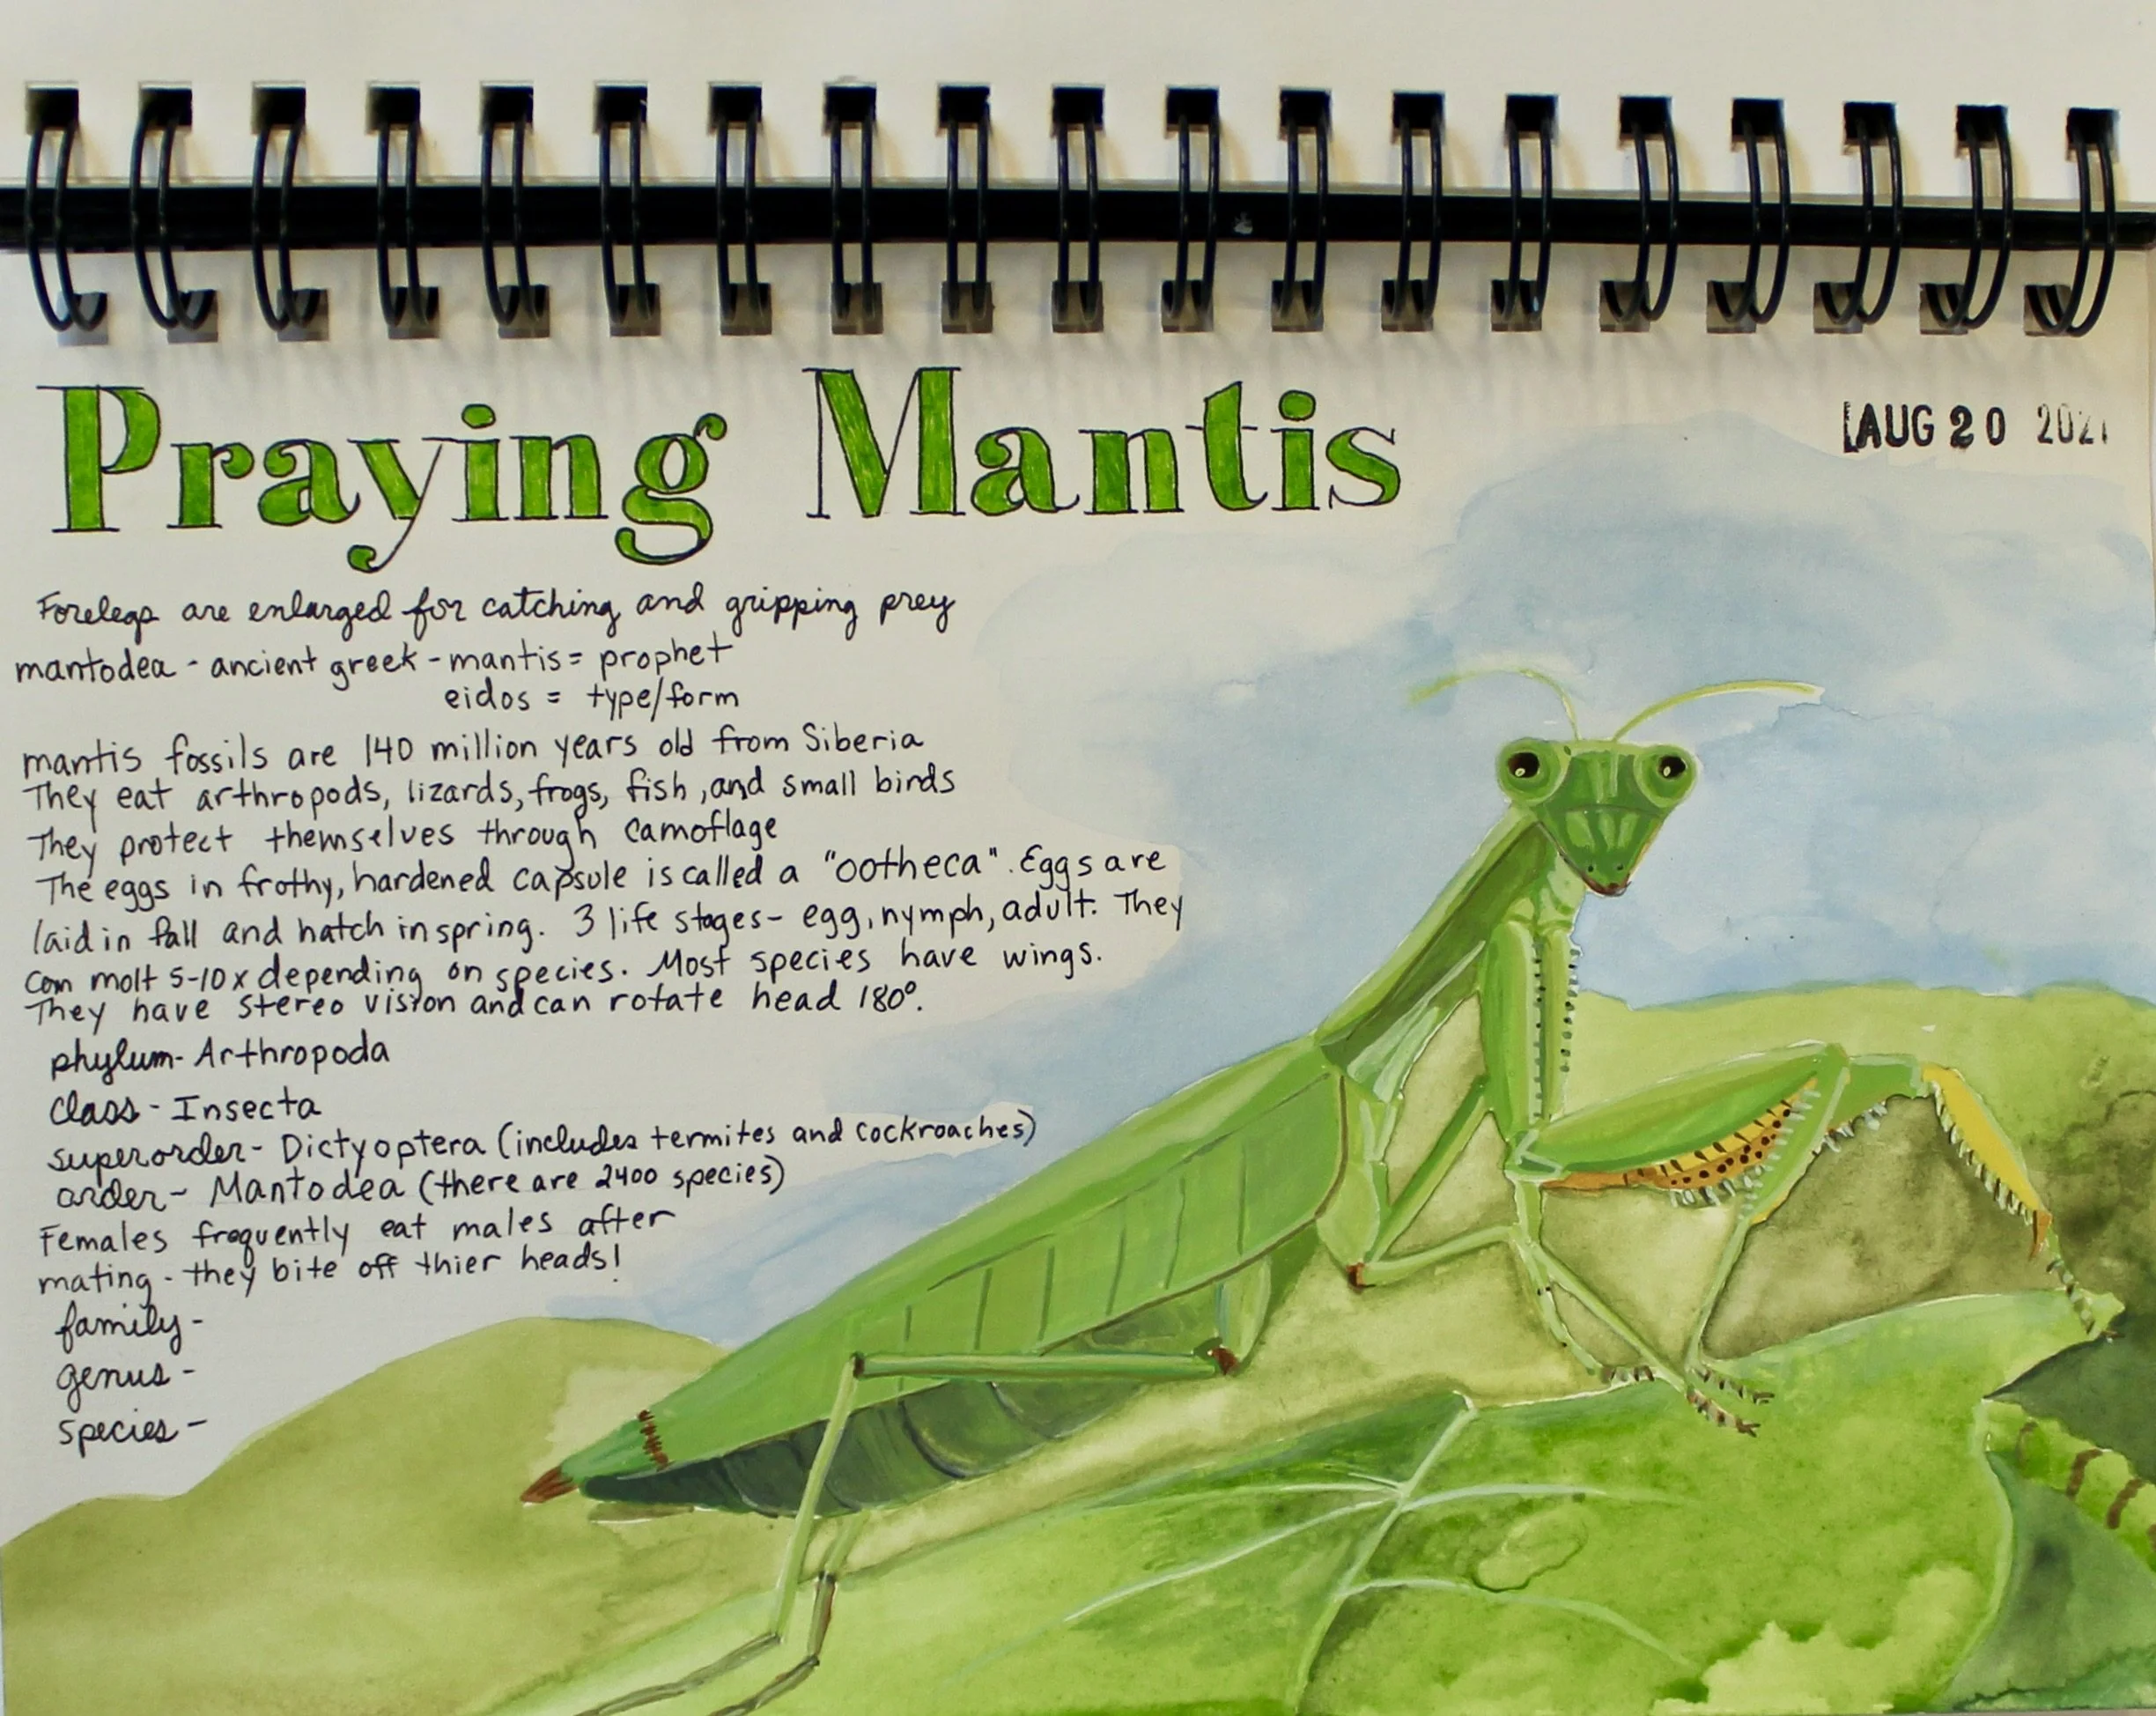 Praying Mantis
AUG 20 2021
Forelegs are enlarged for catching and gripping prey
mantodea - ancient greek - mantis = prophet
eidos = type/form
mantis fossils are 140 million years old from Siberia
They eat arthropods, lizards, frogs, fish, and small birds
They protect themselves through camoflage
The eggs in frothy, hardened capsule is called a "ootheca". Eggs are
laid in fall and hatch in spring. 3 life stages - egg, nymph, adult. They
can molt 5-10x depending on species. Most species have wings.
They have stereo vision and can rotate head 180°.
phylum - Arthropoda
class - Insecta
superorder - Dictyoptera (includes termites and cockroaches)
order - Mantodea (there are 2400 species)
Females frequently eat males after
mating - they bite off thier heads!
family -
genus -
species -